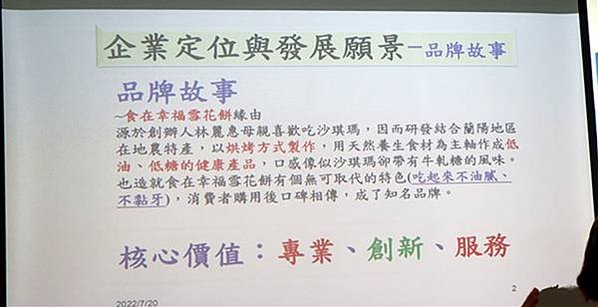 企業定位與發展願景－品牌故事
品牌故事
~食在幸福雪花餅緣由
源於創辦人林麗惠母親喜歡吃沙琪瑪，因而研發結合蘭陽地區
在地農特產，以烘烤方式製作，用天然養生食材為主軸作成低
油、低糖的健康產品，口感像似沙琪瑪卻帶有牛軋糖的風味。
也造就食在幸福雪花餅有個無可取代的特色(吃起來不油膩、
不黏牙)，消費者購用後口碑相傳，成了知名品牌。
核心價值：專業、創新、服務
2022/7/20
2